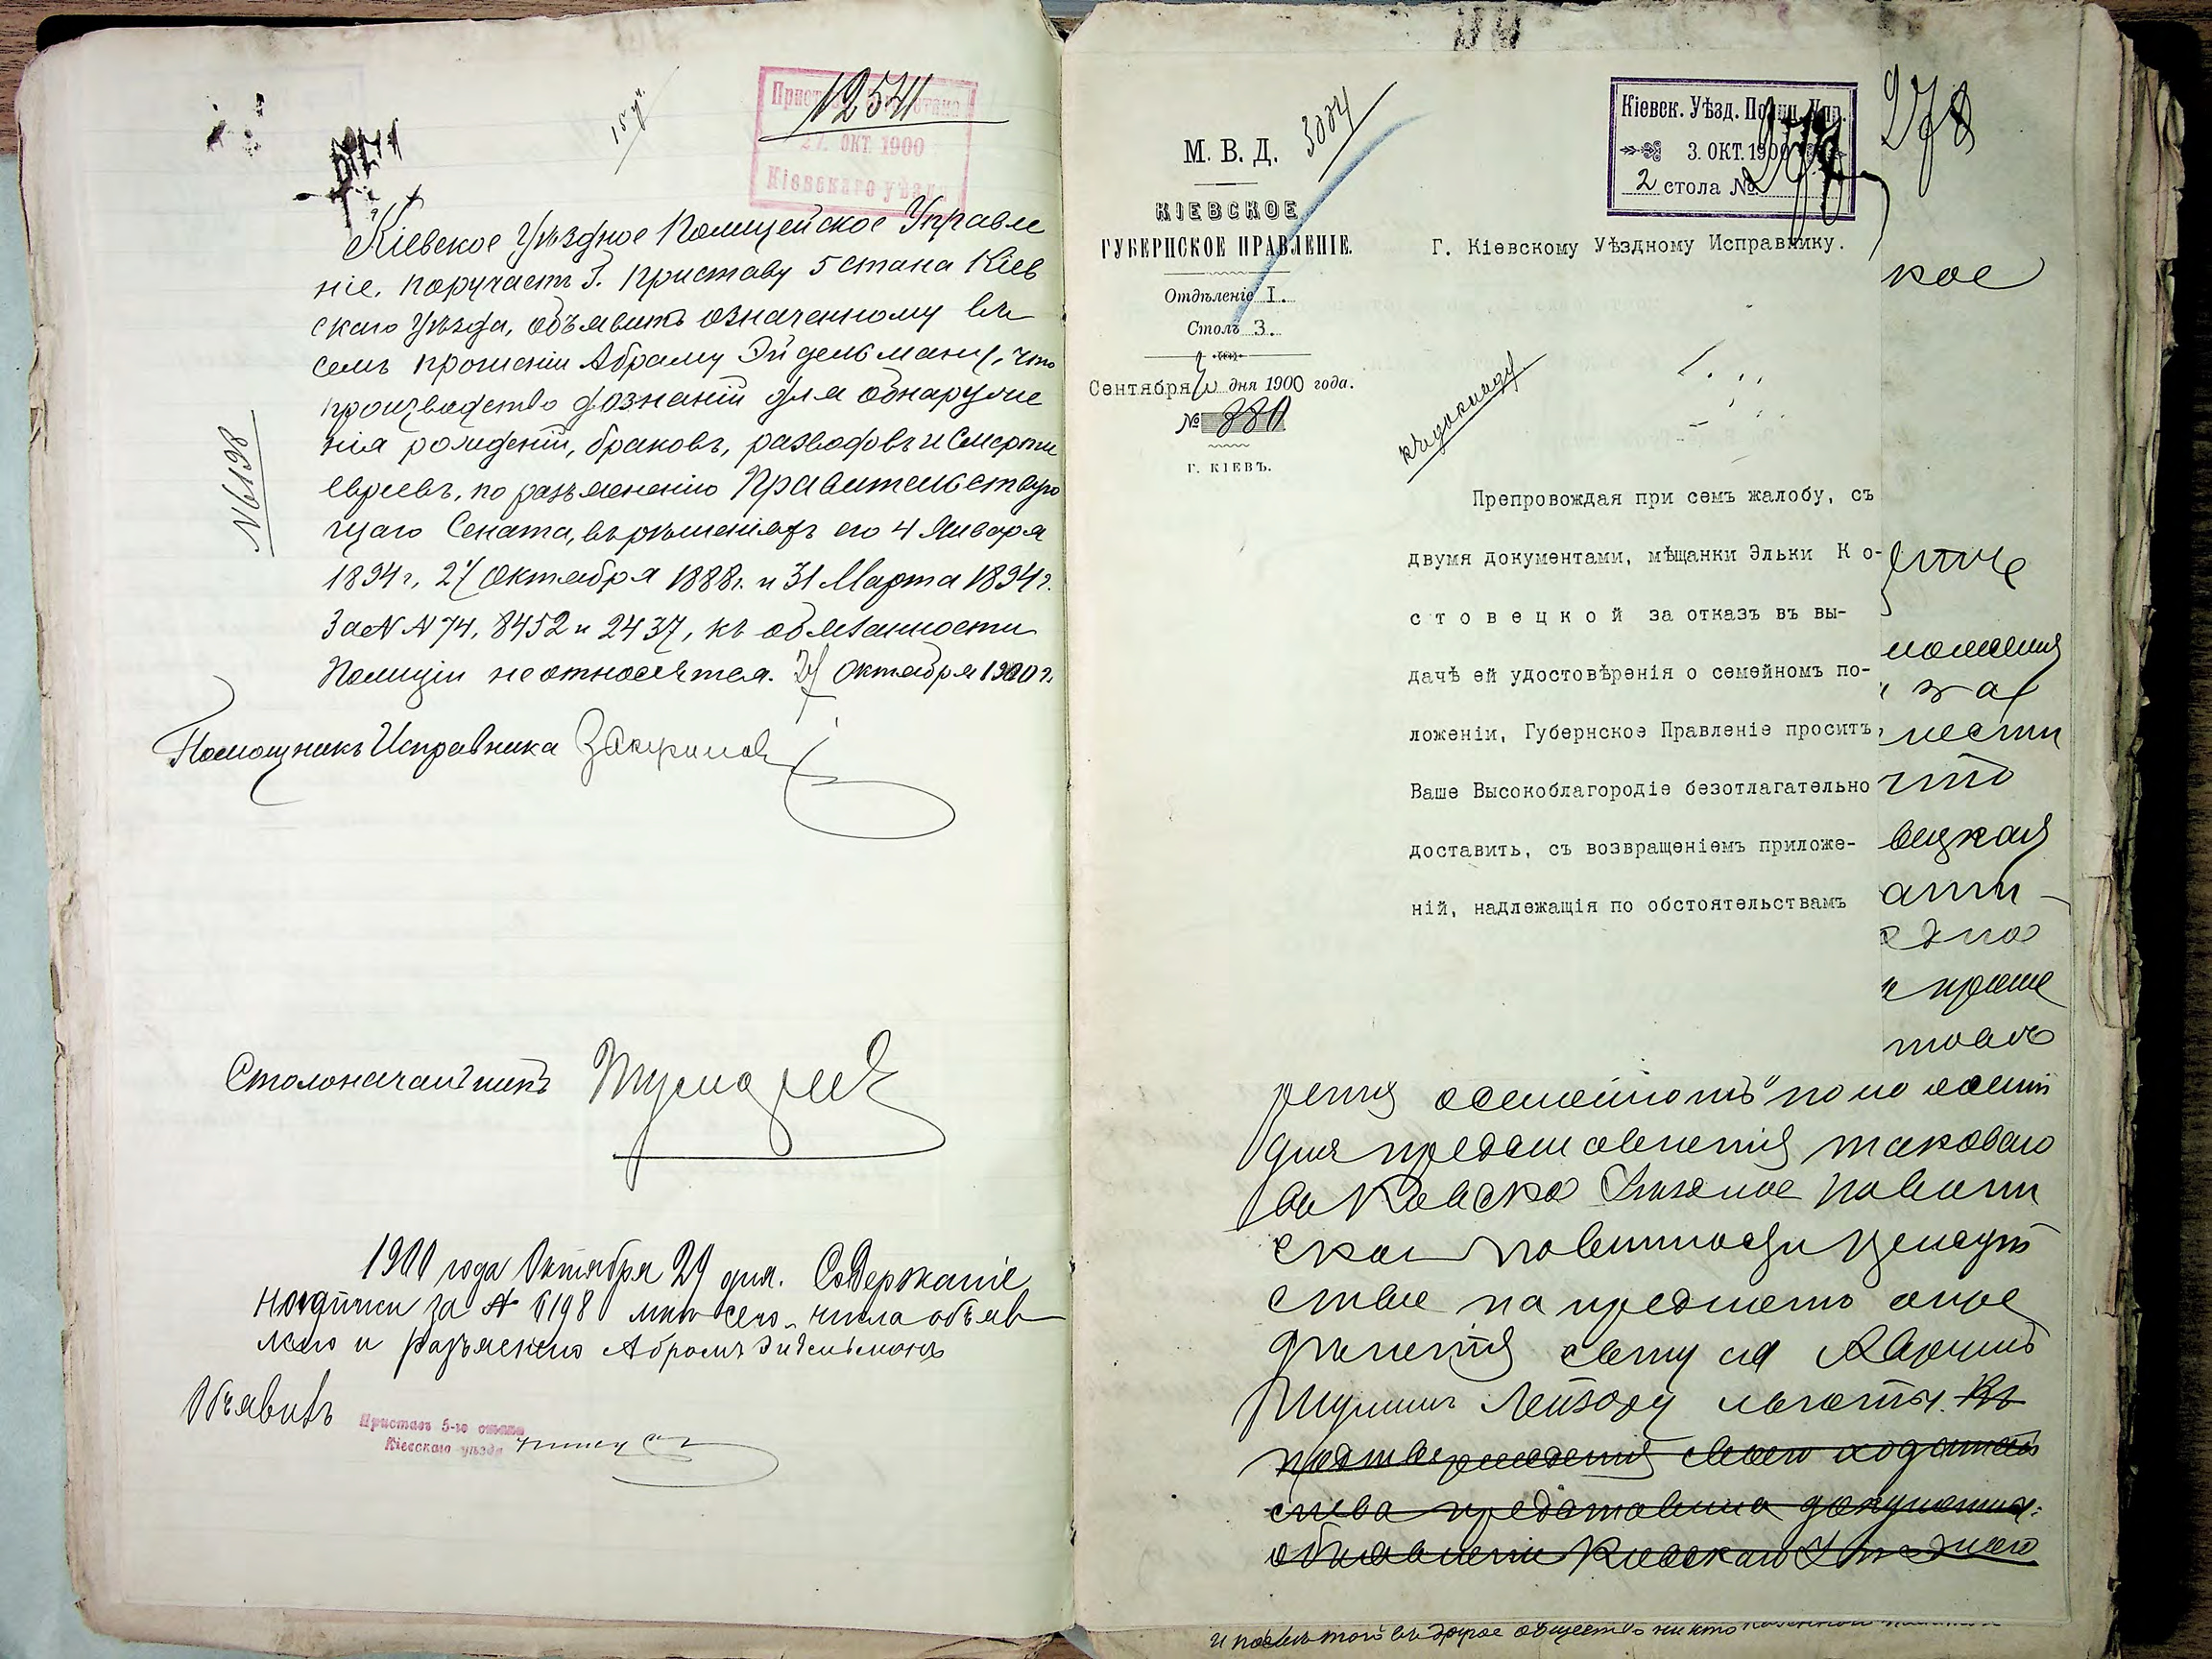 12541
27. ОКТ. 1900
Кіевскаго уѣзда
Кіевское Уѣздное Полицейское Управле
ніе, поручаетъ Г. Приставу 5 стана Кіев
скаго Уѣзда, объявить означенному въ
семъ прошеніи Абраму Эйдельману, что
производство дознаній для обнаруже
нія рожденій, браковъ, разводовъ и смерти
евреевъ, по разъясненію Правительствую
щаго Сената, въ рѣшеніяхъ его 4 Января
1894 г., 27 Октября 1888 г. и 31 Марта 1894 г.
За NN 74, 8452 и 2437, къ обязанности
Полиціи не относятся. 27 Октября 1900 г.
N 6198
Помощникъ Исправника
Столоначальникъ
1900 года Октября 29 дня. Содержаніе
надписи за № 6198 мною сего числа объяв
лено и разъяснено Абраму Эйдельману
Объявилъ
Приставъ 5-го стана
Кіевскаго уѣзда
М. В. Д.
3084
КІЕВСКОЕ
ГУБЕРНСКОЕ ПРАВЛЕНІЕ.
Отдѣленіе I.
Столъ 3.
Сентября дня 1900 года.
№ 880
Г. КІЕВЪ.
Кіевск. Уѣзд. Полиц. Упр.
3. ОКТ. 1900
2 стола №
278
Г. Кіевскому Уѣздному Исправнику.
Препровождая при семъ жалобу, съ
двумя документами, мѣщанки Эльки К о-
с т о в е ц к о й за отказъ въ вы-
дачѣ ей удостовѣренія о семейномъ по-
ложеніи, Губернское Правленіе проситъ
Ваше Высокоблагородіе безотлагательно
доставить, съ возвращеніемъ приложе-
ній, надлежащія по обстоятельствамъ
кое
что
вецкая
рения о семейномъ положении
для представления таковаго
въ Киевское Уездное по воин
ской повинности присут
ствие на предметъ опре
деления сыну ея
Лейзору льготы. Въ
подтверждения своего ходатай
ства представила документы:
объявление Киевскаго Уезднаго
и послѣ того въ другое общество никто